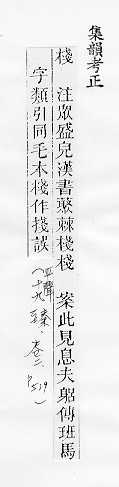 集韻考正
棧 注眾盛皃漢書蓛棘棧棧 案此見息夫躬傳班馬
字類引同毛本棧作㧪誤
(平聲十九臻,卷二,p519)